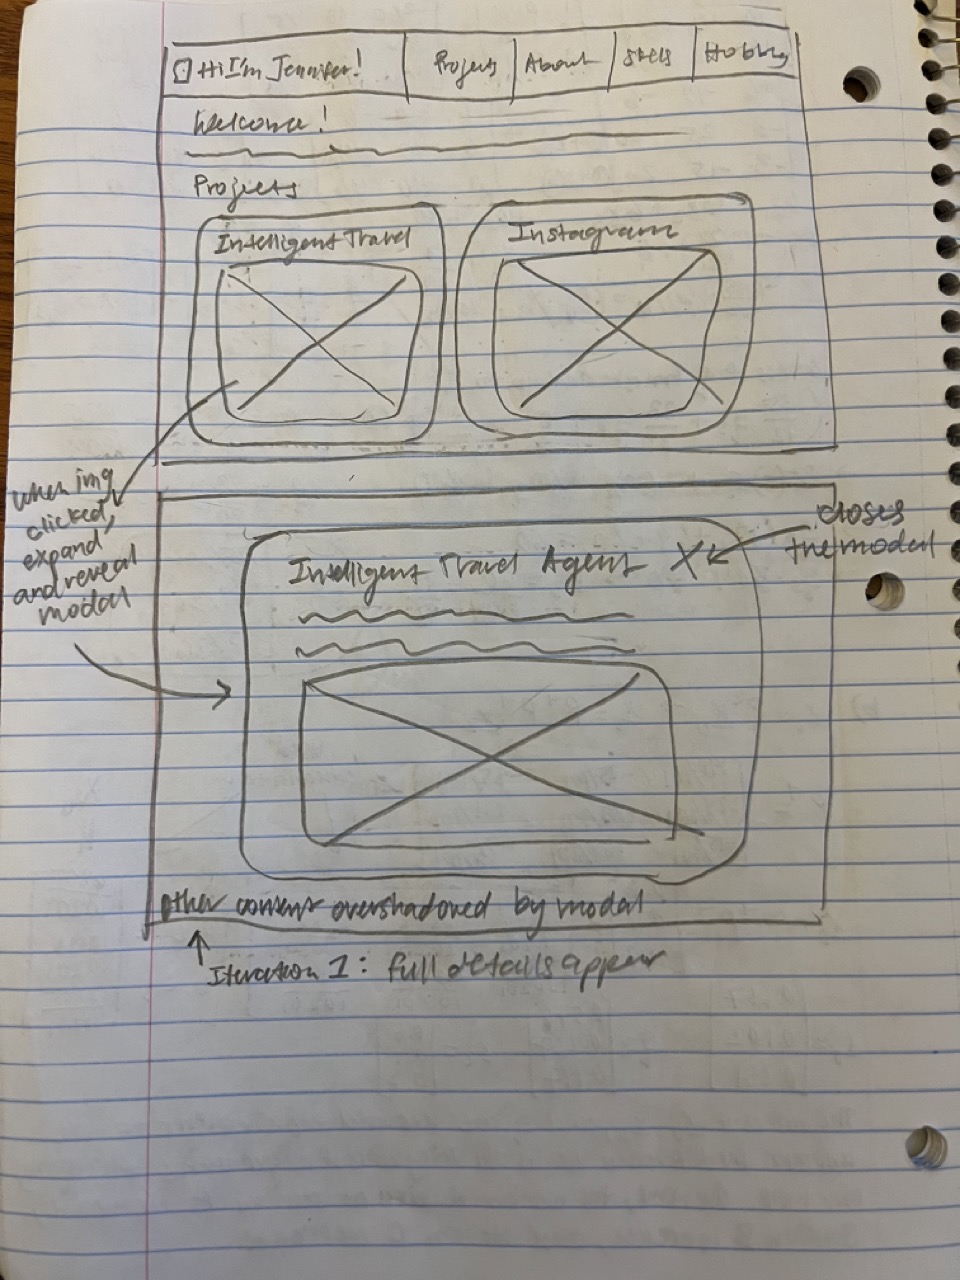 Hi I'm Jennifer!
Projects
About
Skills
Hobby
Welcome!
Projects
Intelligent Travel
Instagram
when img
clicked,
expand
and reveal
modal
closes
the modal
Intelligent Travel Agent X
other content overshadowed by modal
Iteration 1: full details appear